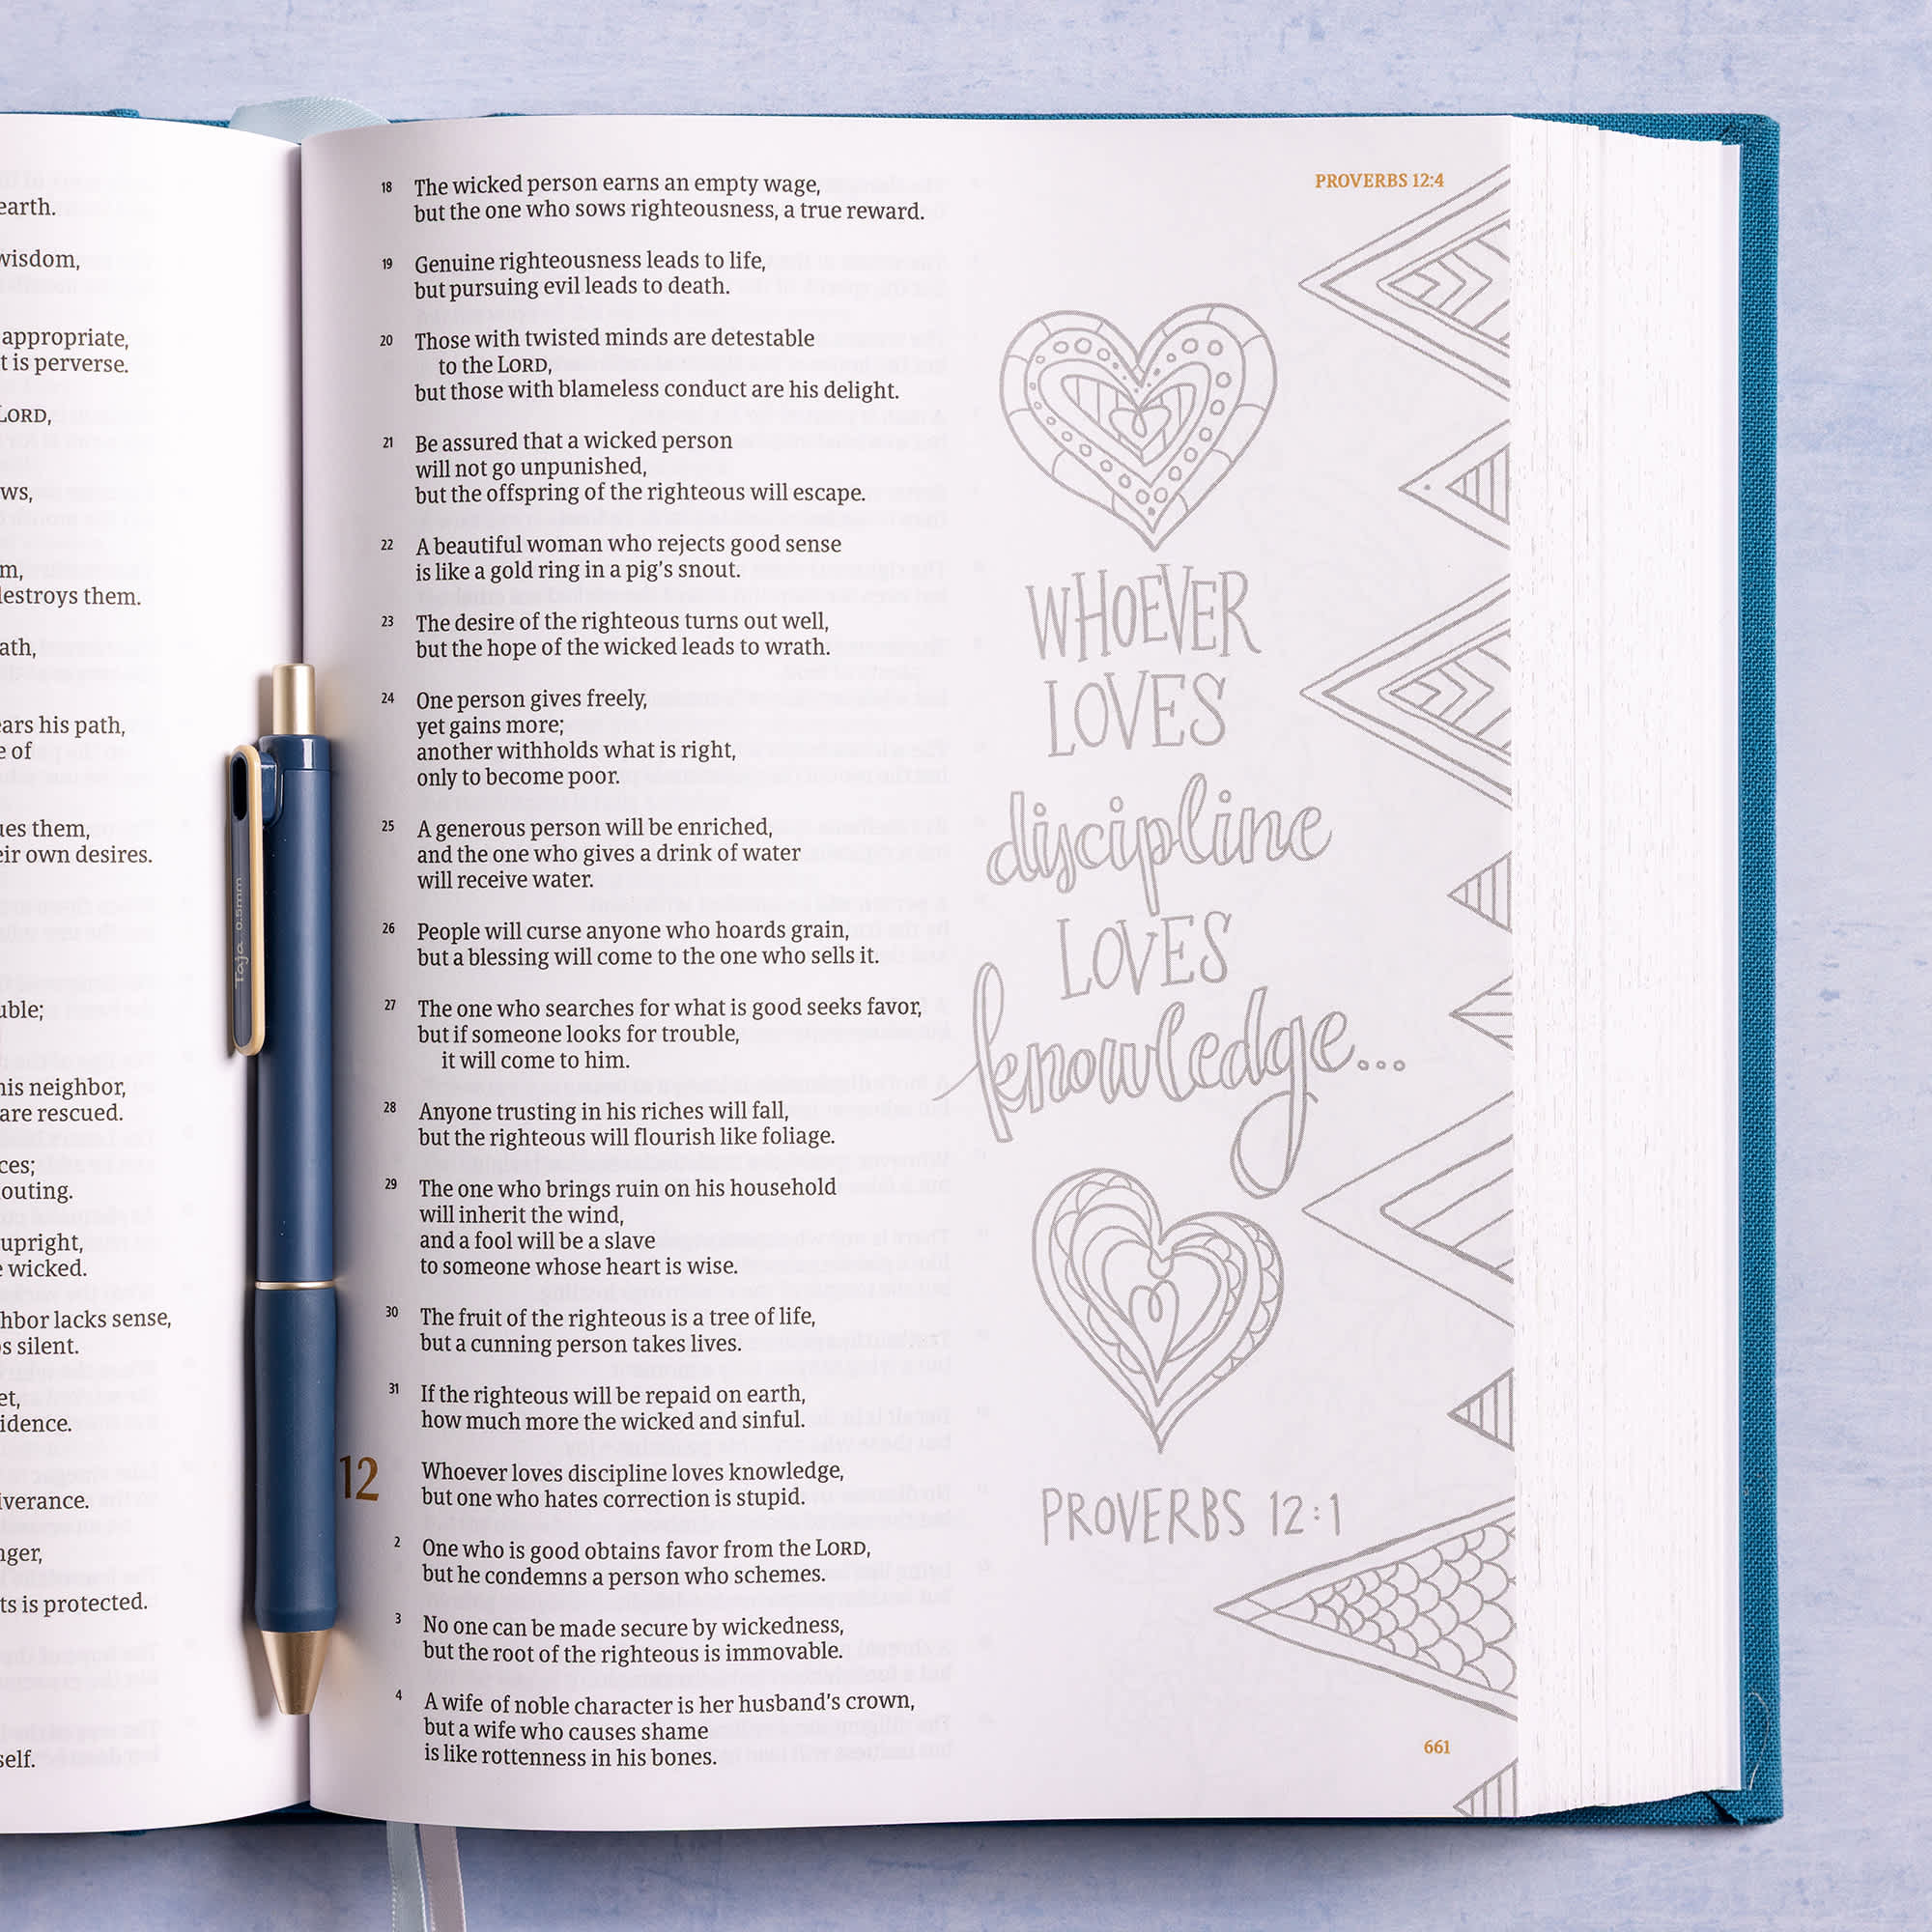 earth.
wisdom,
appropriate,
t is perverse.
LORD,
ws,
m,
destroys them.
ath,
ears his path,
e of
ues them,
eir own desires.
uble;
his neighbor,
are rescued.
ces;
outing.
upright,
e wicked.
hbor lacks sense,
s silent.
et,
idence.
iverance.
nger,
ts is protected.
self.
Taja 0.5mm
PROVERBS 12:4
18 The wicked person earns an empty wage,
but the one who sows righteousness, a true reward.
19 Genuine righteousness leads to life,
but pursuing evil leads to death.
20 Those with twisted minds are detestable
to the LORD,
but those with blameless conduct are his delight.
21 Be assured that a wicked person
will not go unpunished,
but the offspring of the righteous will escape.
22 A beautiful woman who rejects good sense
is like a gold ring in a pig's snout.
23 The desire of the righteous turns out well,
but the hope of the wicked leads to wrath.
24 One person gives freely,
yet gains more;
another withholds what is right,
only to become poor.
25 A generous person will be enriched,
and the one who gives a drink of water
will receive water.
26 People will curse anyone who hoards grain,
but a blessing will come to the one who sells it.
27 The one who searches for what is good seeks favor,
but if someone looks for trouble,
it will come to him.
28 Anyone trusting in his riches will fall,
but the righteous will flourish like foliage.
29 The one who brings ruin on his household
will inherit the wind,
and a fool will be a slave
to someone whose heart is wise.
30 The fruit of the righteous is a tree of life,
but a cunning person takes lives.
31 If the righteous will be repaid on earth,
how much more the wicked and sinful.
12 Whoever loves discipline loves knowledge,
but one who hates correction is stupid.
2 One who is good obtains favor from the LORD,
but he condemns a person who schemes.
3 No one can be made secure by wickedness,
but the root of the righteous is immovable.
4 A wife of noble character is her husband's crown,
but a wife who causes shame
is like rottenness in his bones.
WHOEVER
LOVES
discipline
LOVES
knowledge...
PROVERBS 12:1
661